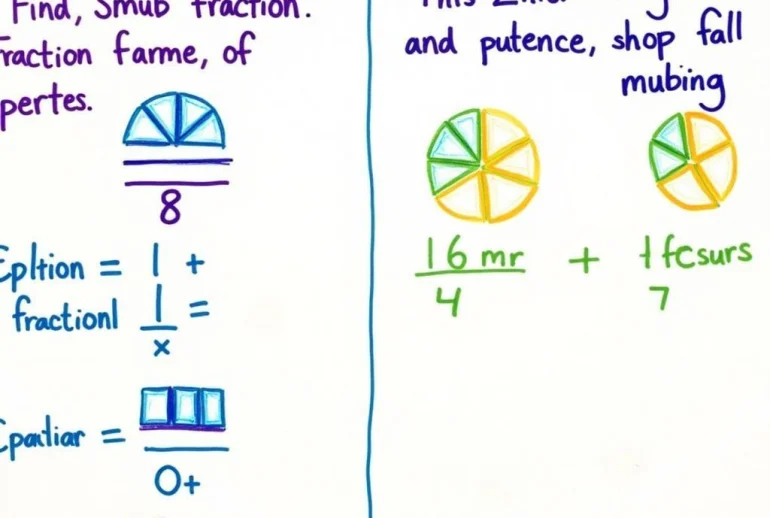 Find, Smub fraction.
raction farme, of
pertes.
8
Epltion = 1 +
fractionl 1 =
x
=
0+
and putence, shop fall
mubing
16 mr + 1 fcsurs
4 7